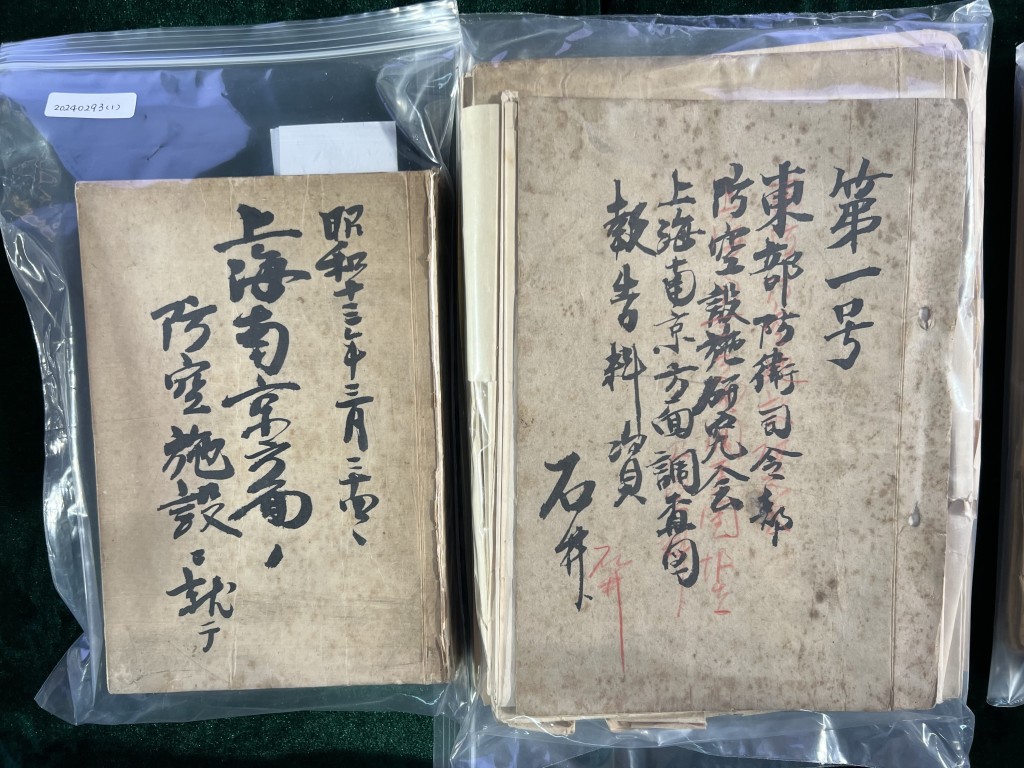 20240293(1)
昭和十三年三月
上海南京方面ノ
防空施設ニ就テ
第一号
東部防衛司令部
防空設施研究会
上海南京方面調査団
報告料資
石井
石井